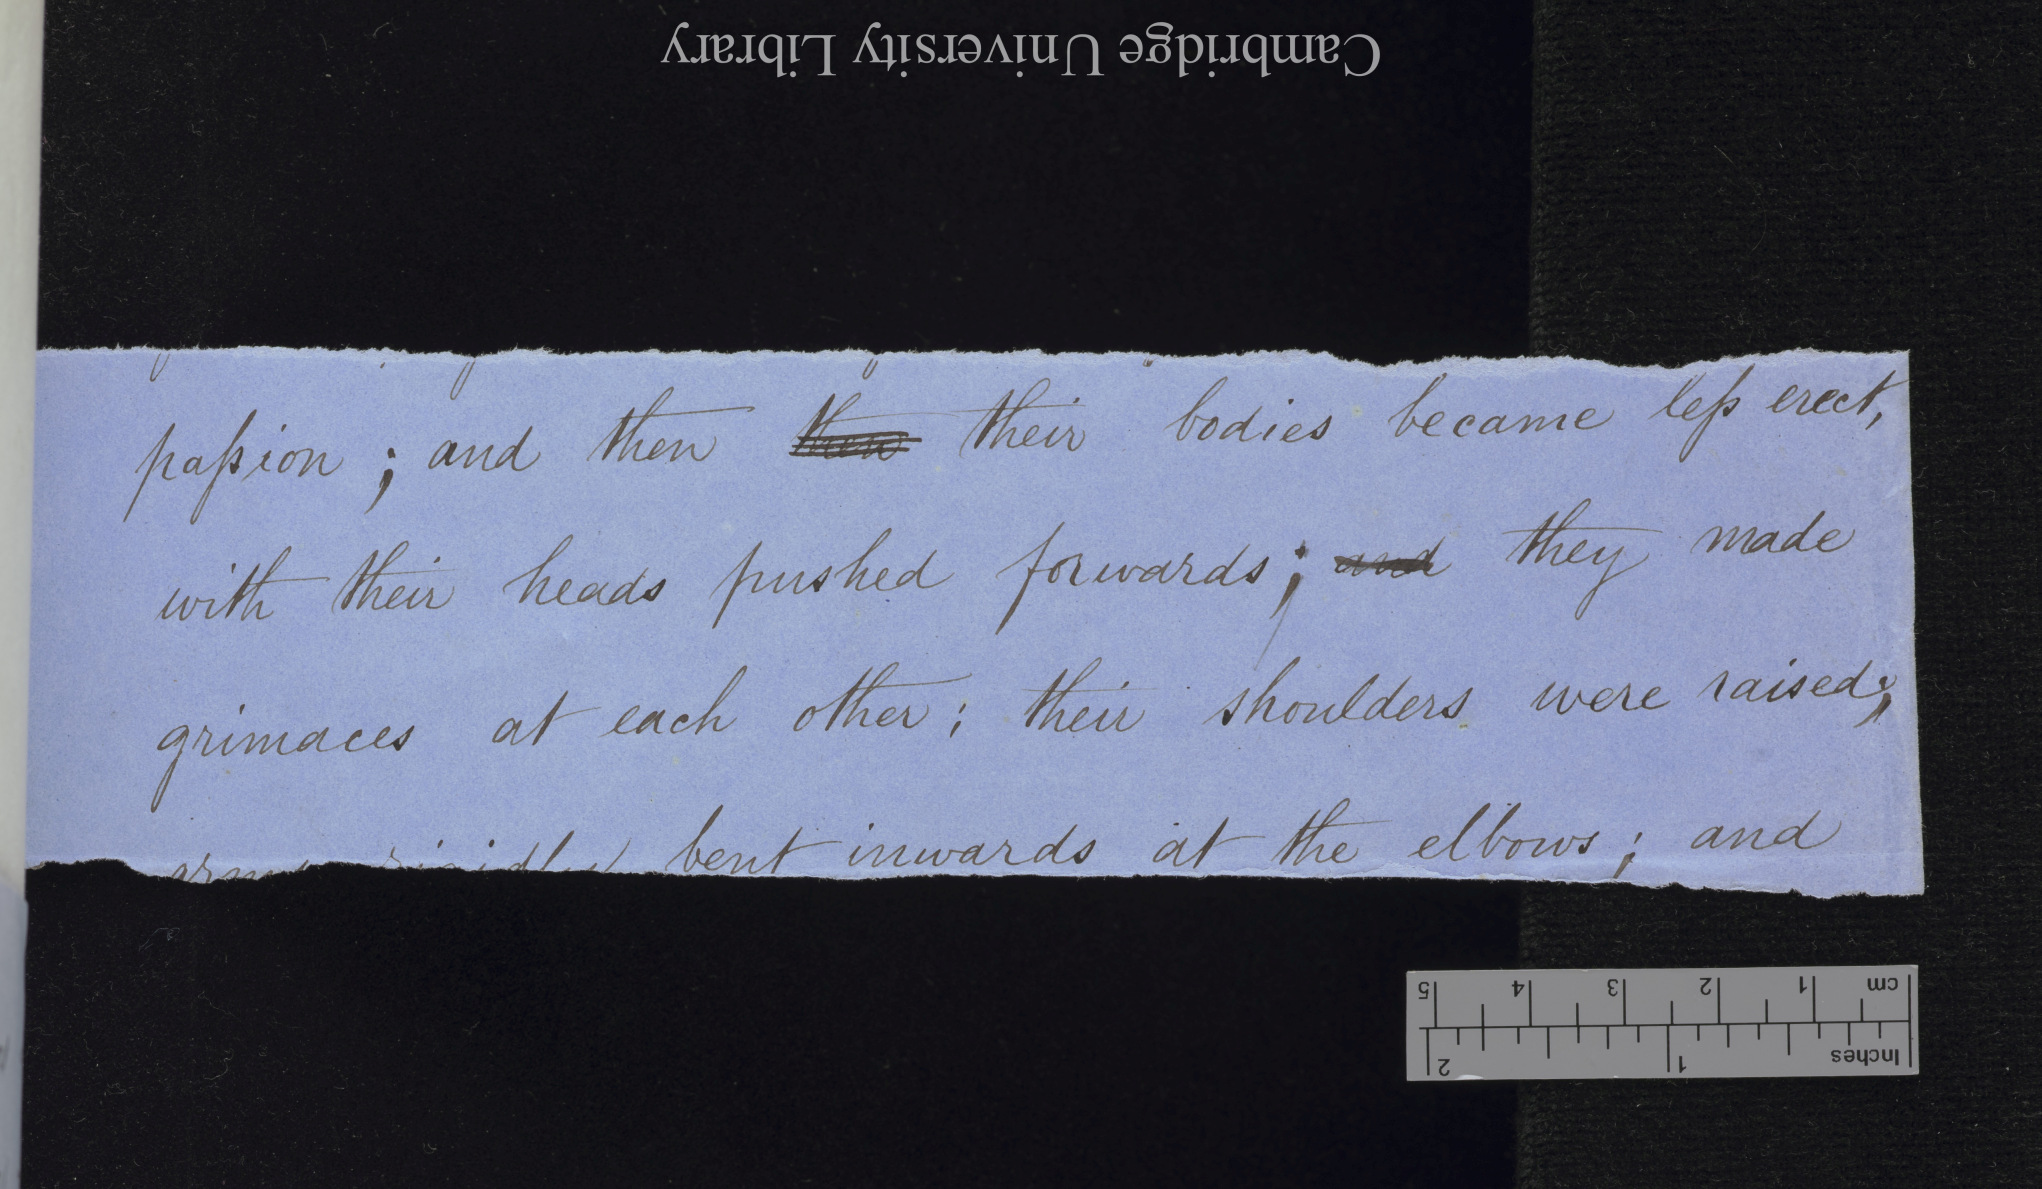 Cambridge University Library
paſsion ; and then ~~then~~ their bodies became leſs erect,
with their heads pushed forwards; ~~and~~ they made
grimaces at each other; their shoulders were raised;
arms rigidly bent inwards at the elbows; and
cm 1 2 3 4 5
Inches 1 2